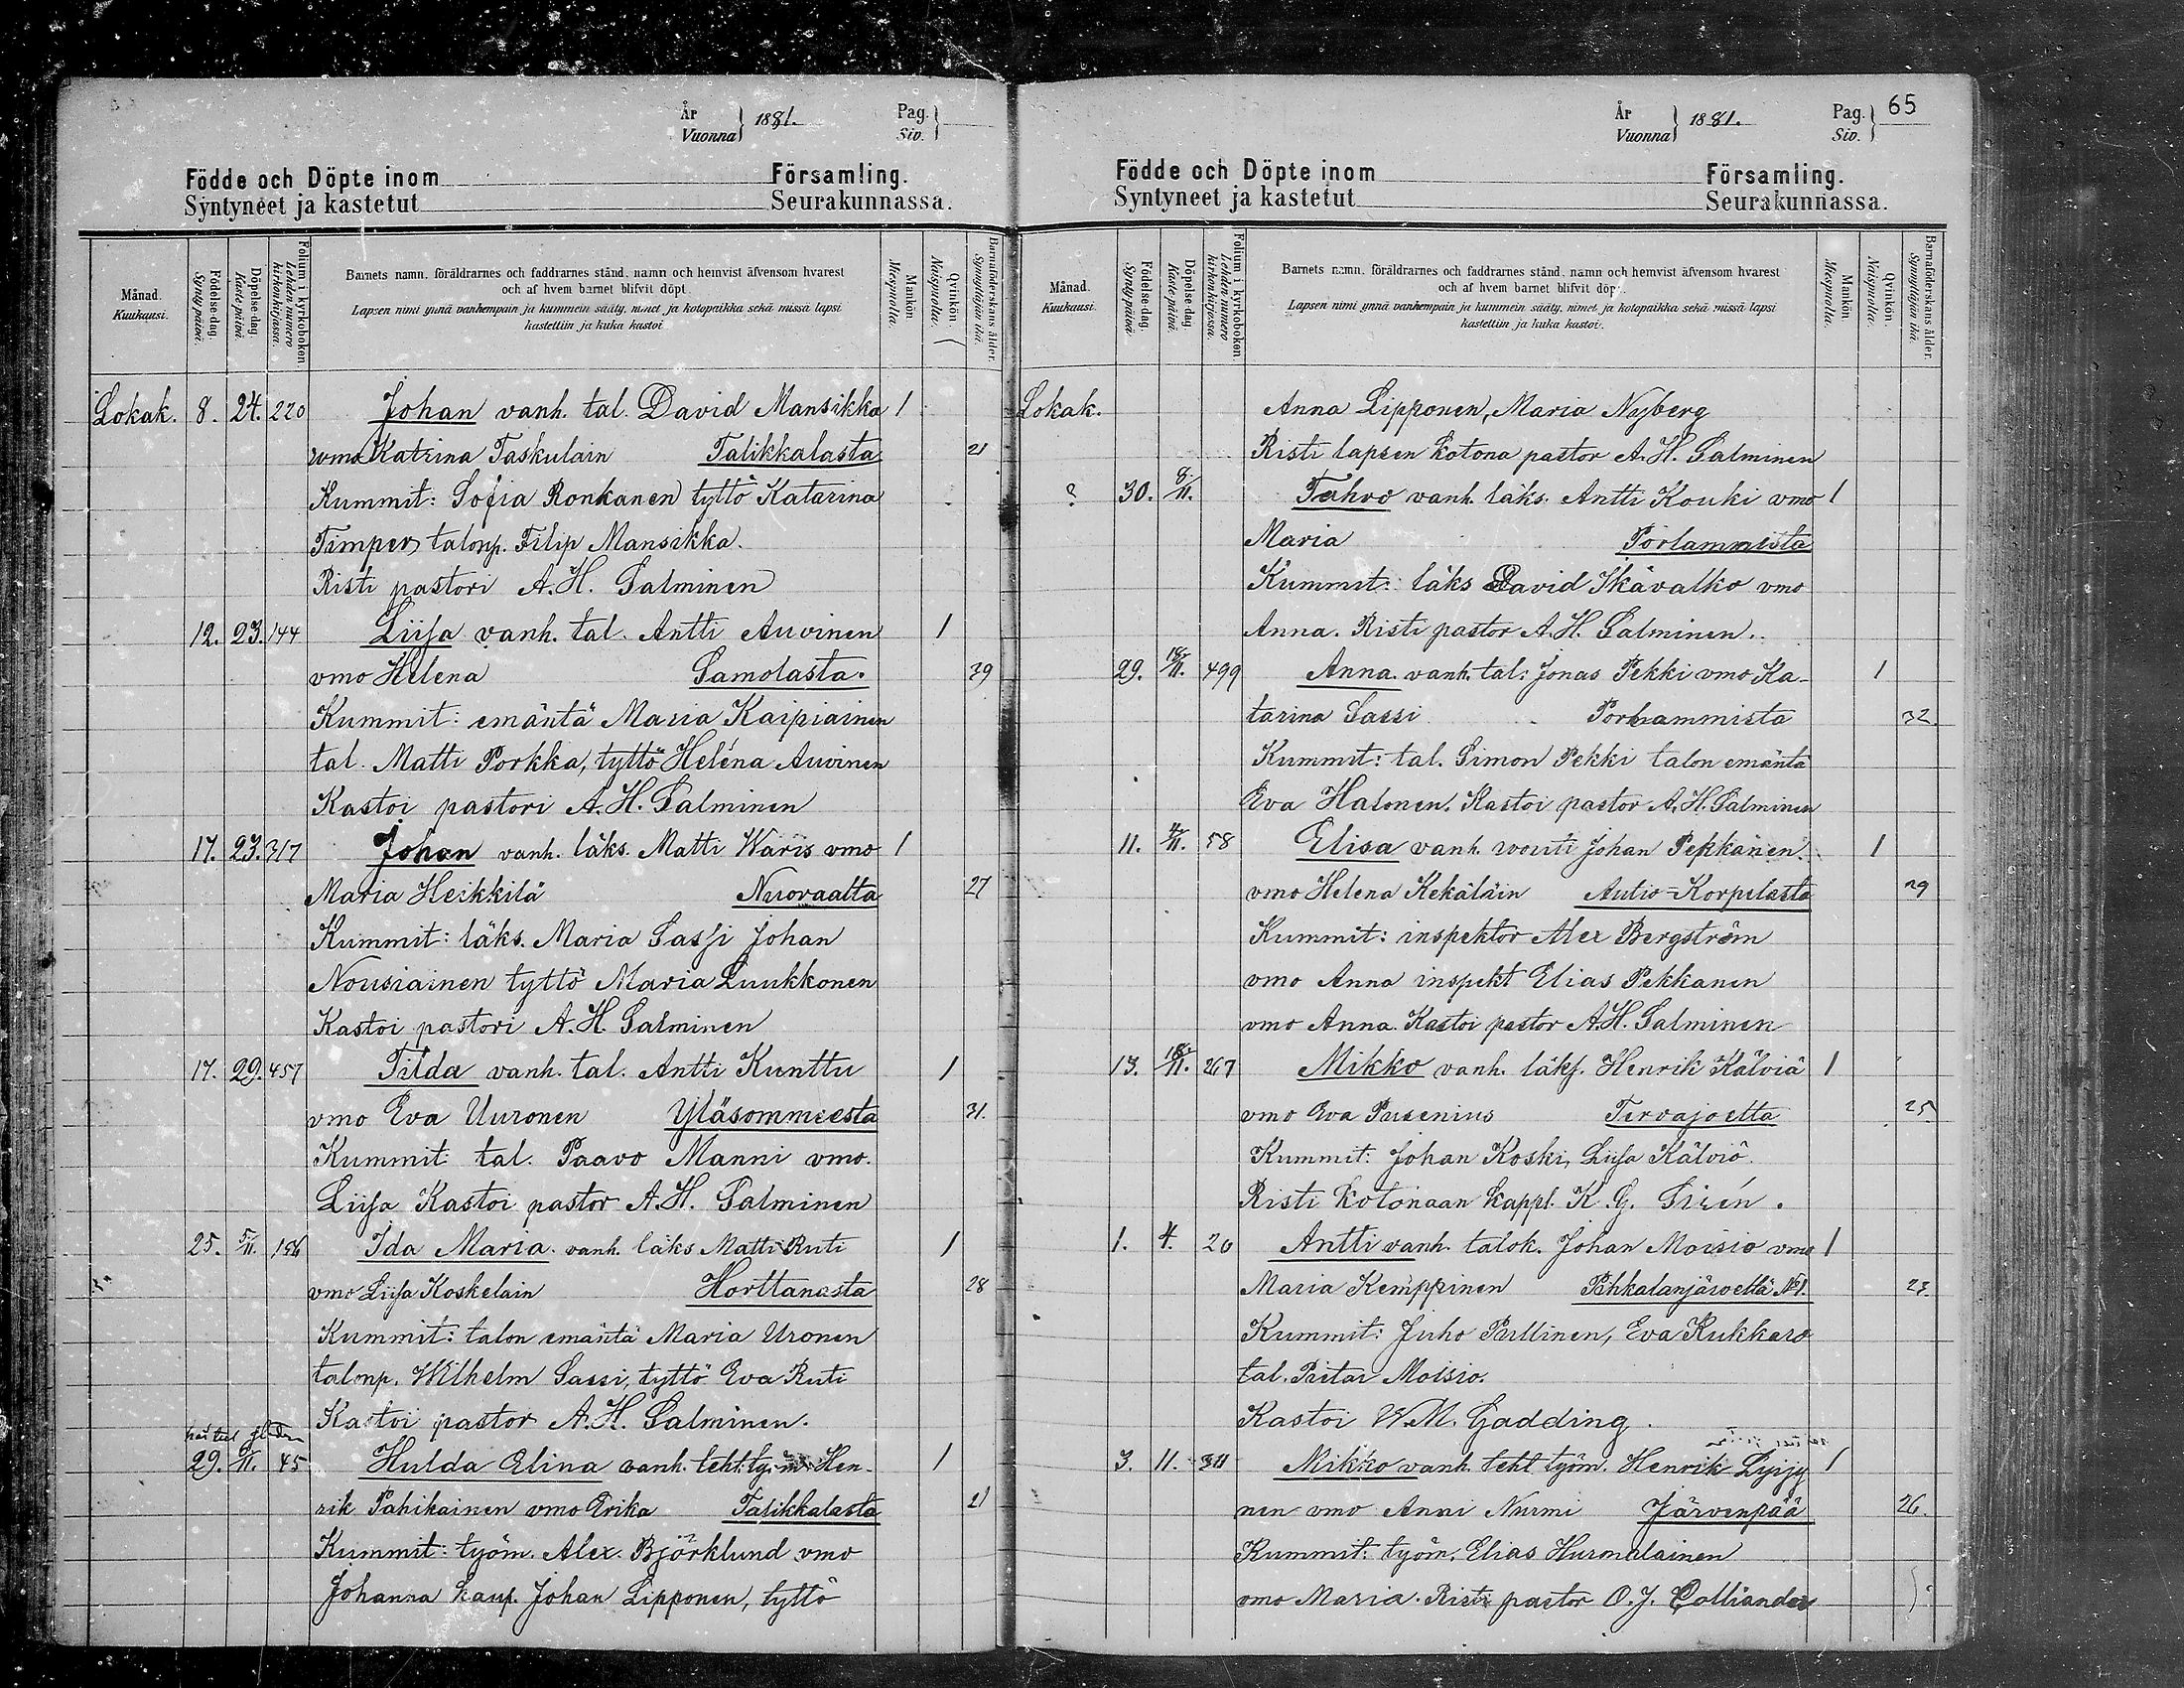 År
Vuonna } 1881.
Pag.
Siv. }
Födde och Döpte inom Församling.
Syntyneet ja kastetut Seurakunnassa.
Månad. Kuukausi.
Födelse-dag. Syntypäivä.
Döpelse-dag. Kastepäivä.
Folium i kyrkoboken. Lehden numero kirkonkirjassa.
Barnets namn, föräldrarnes och faddrarnes stånd, namn och hemvist äfvensom hvarest
och af hvem barnet blifvit döpt.
Lapsen nimi ynnä vanhempain ja kummein sääty, nimet ja kotopaikka sekä missä lapsi
kastettiin ja kuka kastoi.
Mankön. Miespuolia.
Qvinkön. Naispuolia.
Barnaföderskans ålder. Synnyttäjän ikä.
Lokak. 8. 24. 220 Johan vanh. tal. David Mansikka 1
vmo Katrina Taskulain Talikkalasta 21
Kummit: Sofia Ronkanen tyttö Katarina
Timper talonp. Filip Mansikka.
Risti pastori A. H. Salminen
12. 23. 144 Liisa vanh. tal. Antti Auvinen 1
vmo Helena Samolasta. 39
Kummit: emäntä Maria Kaipiainen
tal. Matti Porkka, tyttö Helena Auvinen
Kastoi pastori A. H. Salminen
17. 23. 317 Johan vanh. läks. Matti Waris vmo 1
Maria Heikkilä Nuoraalta 27
Kummit: läks. Maria Sassi Johan
Nousiainen tyttö Maria Luukkonen
Kastoi pastori A. H. Salminen
17. 29. 457 Tilda vanh. tal. Antti Kunttu 1
vmo Eva Uuronen Yläsommeesta 31.
Kummit tal. Paavo Manni vmo.
Liisa Kastoi pastor A. H. Salminen
25. 5/11. 156 Ida Maria. vanh. läks Matti Ruti 1
vmo Liisa Koskelain Horttanasta 28
Kummit: talon emäntä Maria Uronen
talonp. Wilhelm Sassi, tyttö Eva Ruti
Kastoi pastor A. H. Salminen.
29. 45 Hulda Elina vanh. teht. työm. Hen- 1
rik Pahikainen vmo Erika Talikkalasta 21
Kummit: työm. Alex. Björklund vmo
Johanna kaup. Johan Lipponen, tyttö
År
Vuonna } 1881.
Pag.
Siv. } 65
Födde och Döpte inom Församling.
Syntyneet ja kastetut Seurakunnassa.
Månad. Kuukausi.
Födelse-dag. Syntypäivä.
Döpelse-dag. Kastepäivä.
Folium i kyrkoboken. Lehden numero kirkonkirjassa.
Barnets namn, föräldrarnes och faddrarnes stånd, namn och hemvist äfvensom hvarest
och af hvem barnet blifvit döpt.
Lapsen nimi ynnä vanhempain ja kummein sääty, nimet ja kotopaikka sekä missä lapsi
kastettiin ja kuka kastoi.
Mankön. Miespuolia.
Qvinkön. Naispuolia.
Barnaföderskans ålder. Synnyttäjän ikä.
Lokak. Anna Lipponen, Maria Nyberg
Risti lapsen kotona pastor A. H. Salminen
? 30. 8/11. Tahvo vanh. läks. Antti Kouki vmo 1
Maria Porlammista
Kummit: läks David Ikävalko vmo
Anna. Risti pastor A. H. Salminen.
29. 18/11. 499 Anna. vanh. tal: Jonas Pekki vmo Ka- 1
tarina Sassi Porlammista 32.
Kummit: tal. Simon Pekki talon emäntä
Eva Halonen. Kastoi pastor A. H. Salminen
11. 58 Elisa vanh. wouti Johan Pekkanen. 1
vmo Helena Kekäläin Autio-Korpelasta 29
Kummit: inspektor Alex Bergström
vmo Anna inspekt Elias Pekkanen
vmo Anna. Kastoi pastor A. H. Salminen
13. 18/11. 267 Mikko vanh. läks. Henrik Kälviä 1
vmo Eva Pusenius Tervajoelta 25
Kummit: Johan Koski, Liisa Kälviö
Risti kotonaan kappl. K. G. Sirén.
1. 4. 20 Antti vanh. talok. Johan Moisio vmo 1
Maria Kemppinen Pihkalanjärveltä № 1. 23.
Kummit: Juho Pullinen, Eva Kukkaro
tal. Pietar Moisio.
Kastoi W. M. Gadding.
3. 11. 311 Mikko vanh. teht työm. Henrik Lyijy 1
nen vmo Anni Nurmi Järvenpää 26.
Kummit: työm. Elias Hurmalainen
vmo Maria. Risti pastor O. J. Colliander